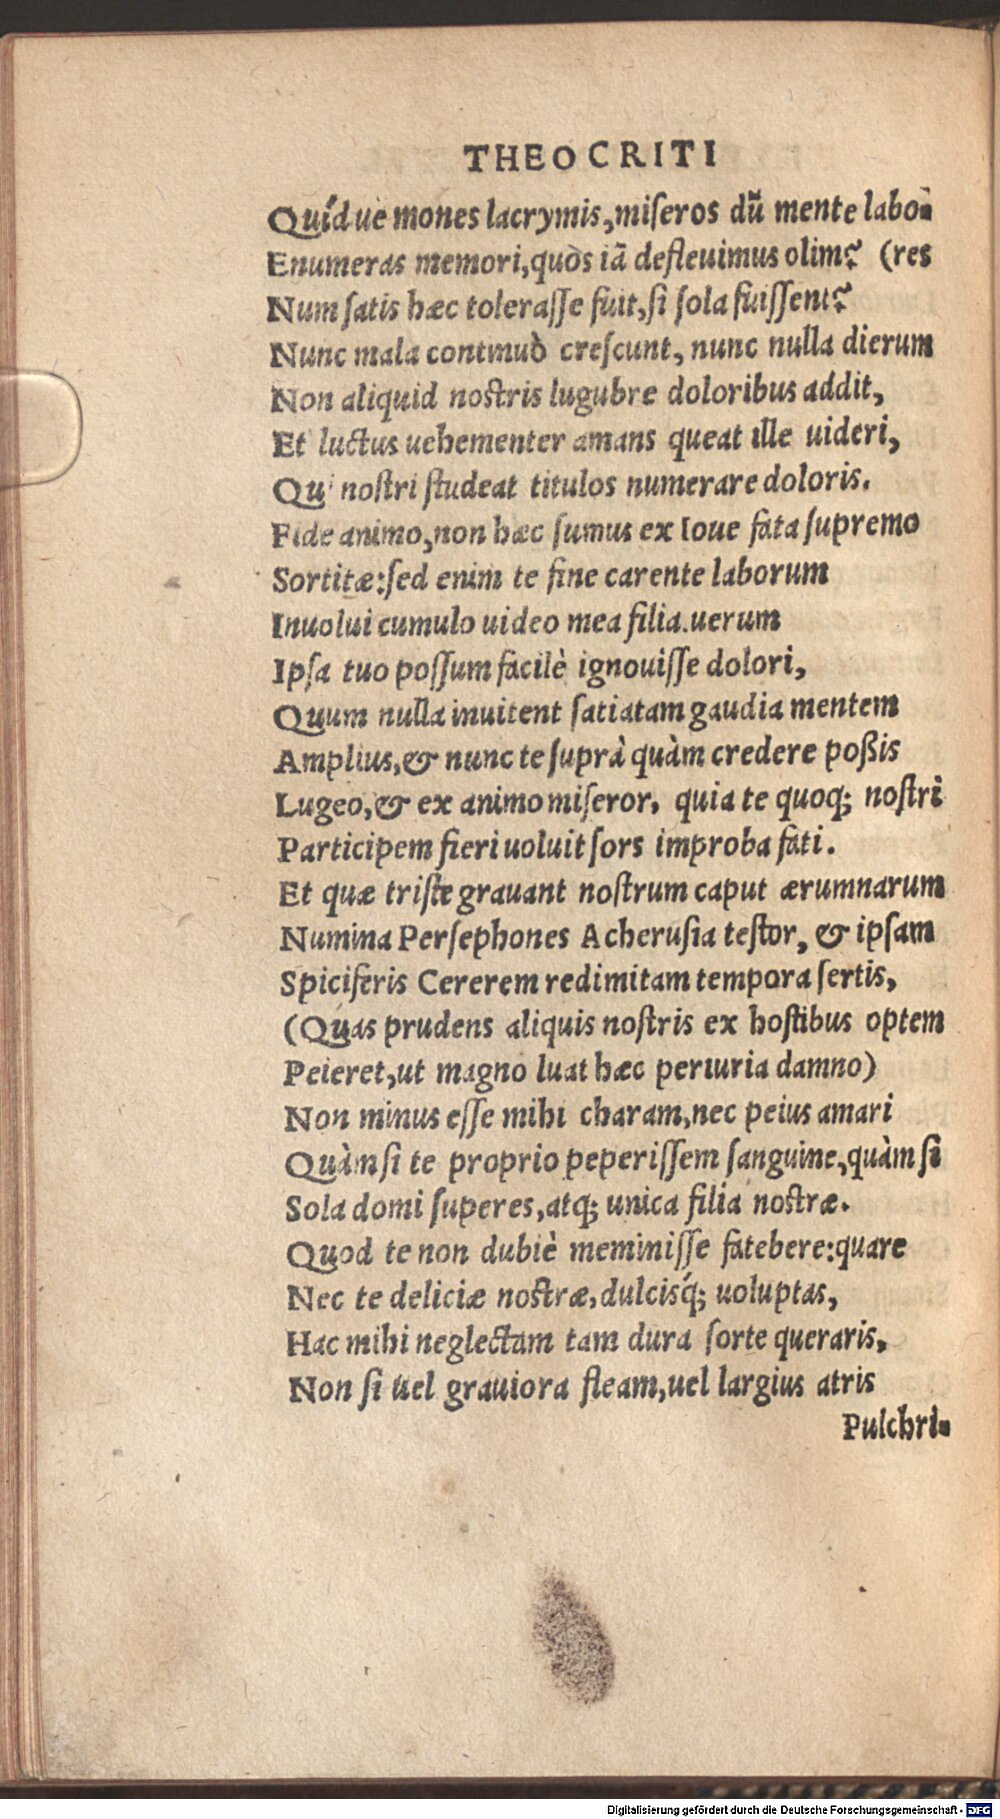 THEOCRITI
Quíd ue mones lacrymis, miſeros dū mente labo-
Enumeras memori, quòs iā defleuimus olim? (res
Num ſatis hæc toleraſſe fuit, ſi ſola fuiſſent?
Nunc mala continuò creſcunt, nunc nulla dierum
Non aliquid noſtris lugubre doloribus addit,
Et luctus uehementer amans queat ille uideri,
Qui noſtri ſtudeat titulos numerare doloris.
Fide animo, non hæc ſumus ex Ioue fata ſupremo
Sortitæ: ſed enim te fine carente laborum
Inuolui cumulo uideo mea filia. uerum
Ipſa tuo poſſum facilè ignouiſſe dolori,
Quum nulla inuitent ſatiatam gaudia mentem
Amplius, & nunc te ſuprà quàm credere poßis
Lugeo, & ex animo miſeror, quia te quoq; noſtri
Participem fieri uoluit ſors improba fati.
Et quæ triſte grauant noſtrum caput ærumnarum
Numina Perſephones Acheruſia teſtor, & ipſam
Spiciferis Cererem redimitam tempora ſertis,
(Quas prudens aliquis noſtris ex hoſtibus optem
Peieret, ut magno luat hæc periuria damno)
Non minus eſſe mihi charam, nec peius amari
Quàm ſi te proprio peperiſſem ſanguine, quàm ſi
Sola domi ſuperes, atq; unica filia noſtræ.
Quod te non dubiè meminiſſe fatebere: quare
Nec te deliciæ noſtræ, dulcisq́; uoluptas,
Hac mihi neglectam tam dura ſorte queraris,
Non ſi uel grauiora fleam, uel largius atris
Pulchri-
Digitalisierung gefördert durch die Deutsche Forschungsgemeinschaft - DFG